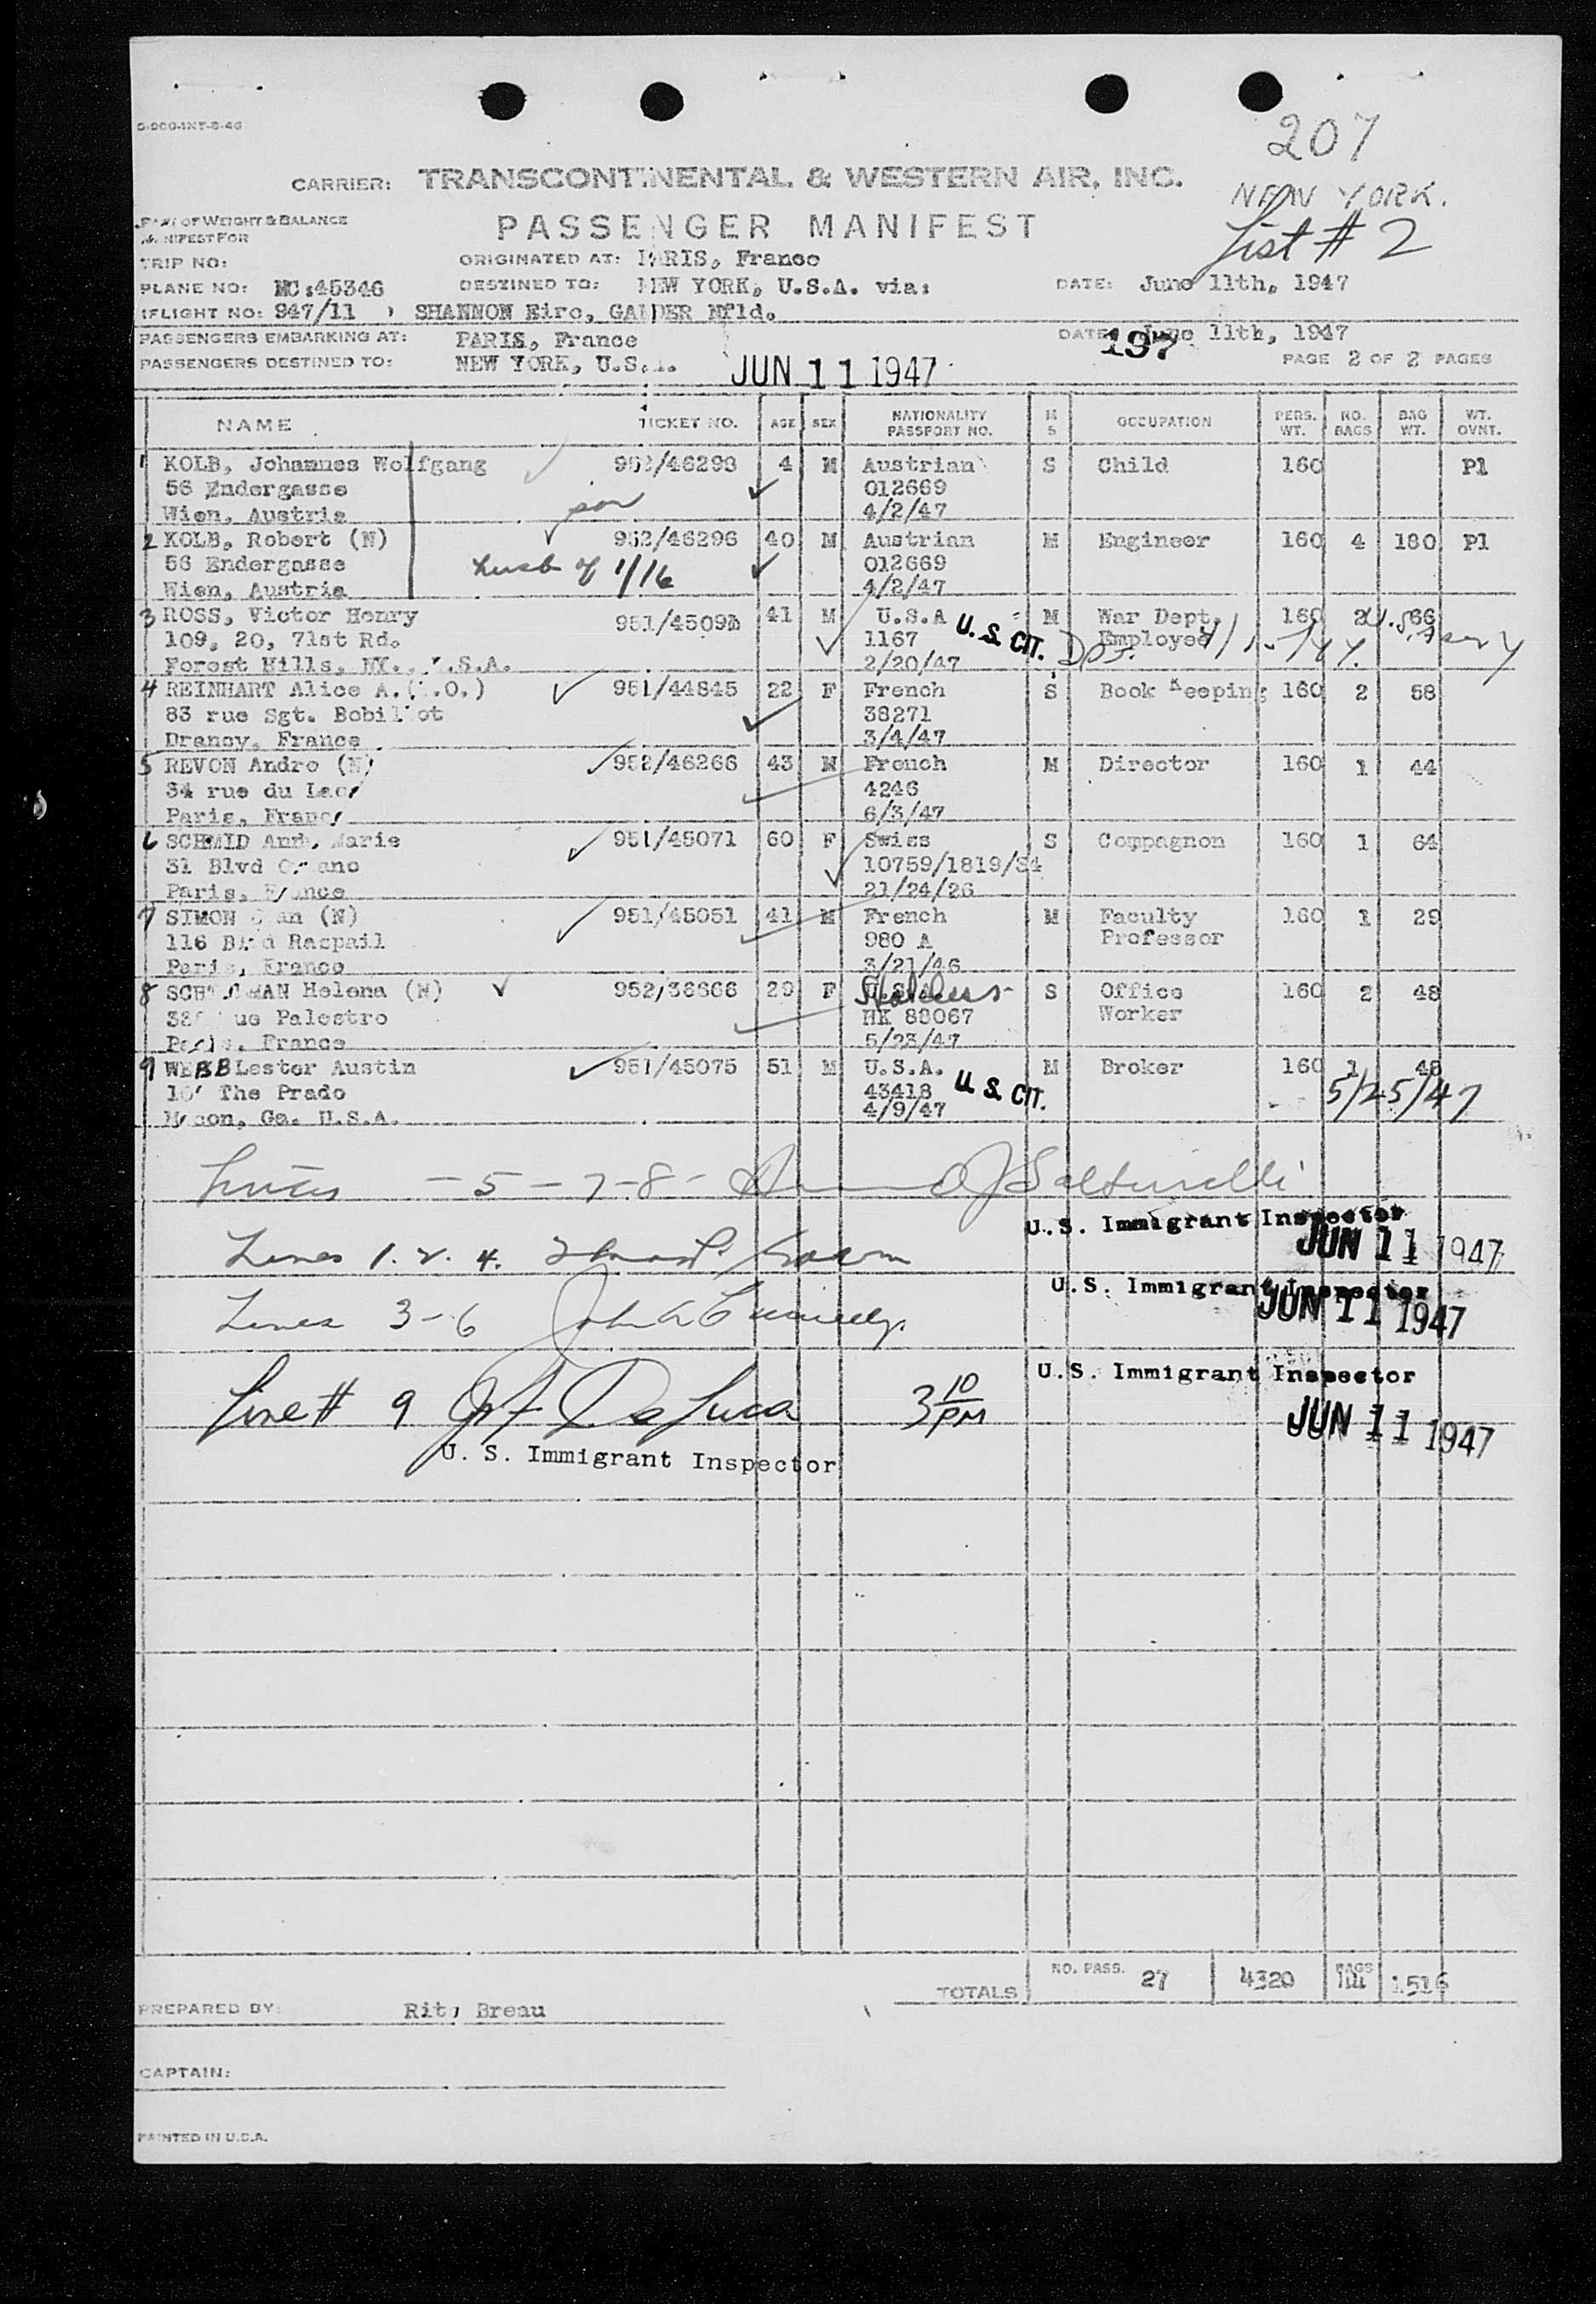 207
CARRIER: TRANSCONTINENTAL & WESTERN AIR, INC.
NEW YORK.
OF WEIGHT & BALANCE
PASSENGER MANIFEST
List # 2
MANIFEST FOR
TRIP NO: ORIGINATED AT: PARIS, France
PLANE NO: MC:45346 DESTINED TO: NEW YORK, U.S.A. via: DATE: June 11th, 1947
FLIGHT NO: 947/11 SHANNON Eire, GANDER Nfld.
PASSENGERS EMBARKING AT: PARIS, France DATE: June 11th, 1947
197
PASSENGERS DESTINED TO: NEW YORK, U.S.A. JUN 11 1947 PAGE 2 OF 2 PAGES
NAME TICKET NO. AGE SEX NATIONALITY PASSPORT NO. M S OCCUPATION PERS. WT. NO. BAGS BAG WT. WT. OVNT.
1 KOLB, Johannes Wolfgang 952/46298 4 M Austrian S Child 160 Pl
56 Endergasse 012669
Wien, Austria son 4/2/47
2 KOLB, Robert (N) 952/46296 40 M Austrian M Engineer 160 4 180 Pl
56 Endergasse husb of 1/16 012669
Wien, Austria 4/2/47
3 ROSS, Victor Henry 951/4509 41 M U.S.A U.S. CIT. M War Dept. 160 2 66
109, 20, 71st Rd. 1167 Employee
Forest Hills, NY., U.S.A. 2/20/47
4 REINHART Alice A. 951/44845 22 F French S Book Keeping 160 2 58
83 rue Sgt. Bobillot 38271
Drancy, France 3/4/47
5 REVON Andre (N) 952/46266 43 M French M Director 160 1 44
34 rue du 4246
Paris, France 6/3/47
6 SCHMID Marie 951/45071 60 F Swiss S Compagnon 160 1 64
31 Blvd 10759/1819/34
Paris, France 21/24/26
7 SIMON (N) 951/45051 41 M French M Faculty 160 1 29
116 Raspail 980 A Professor
Paris, France 3/21/46
8 Helena (N) 952/36666 29 F S Office 160 2 48
Palestro HK 88067 Worker
Paris, France 5/23/47
9 WEBB Lester Austin 951/45075 51 M U.S.A. M Broker 160 1 48
The Prado 43418 U.S. CIT. 5/25/47
Macon, Ga. U.S.A. 4/9/47
Lines - 5 - 7 - 8 -
U.S. Immigrant Inspector
JUN 11 1947
Lines 1. 2. 4.
U.S. Immigrant Inspector
JUN 11 1947
Lines 3-6
U.S. Immigrant Inspector
Line # 9 De Luca 3 10 PM
JUN 11 1947
U. S. Immigrant Inspector
TOTALS NO. PASS. 27 4320 BAGS 1516
PREPARED BY: Breau
CAPTAIN:
PRINTED IN U.S.A.